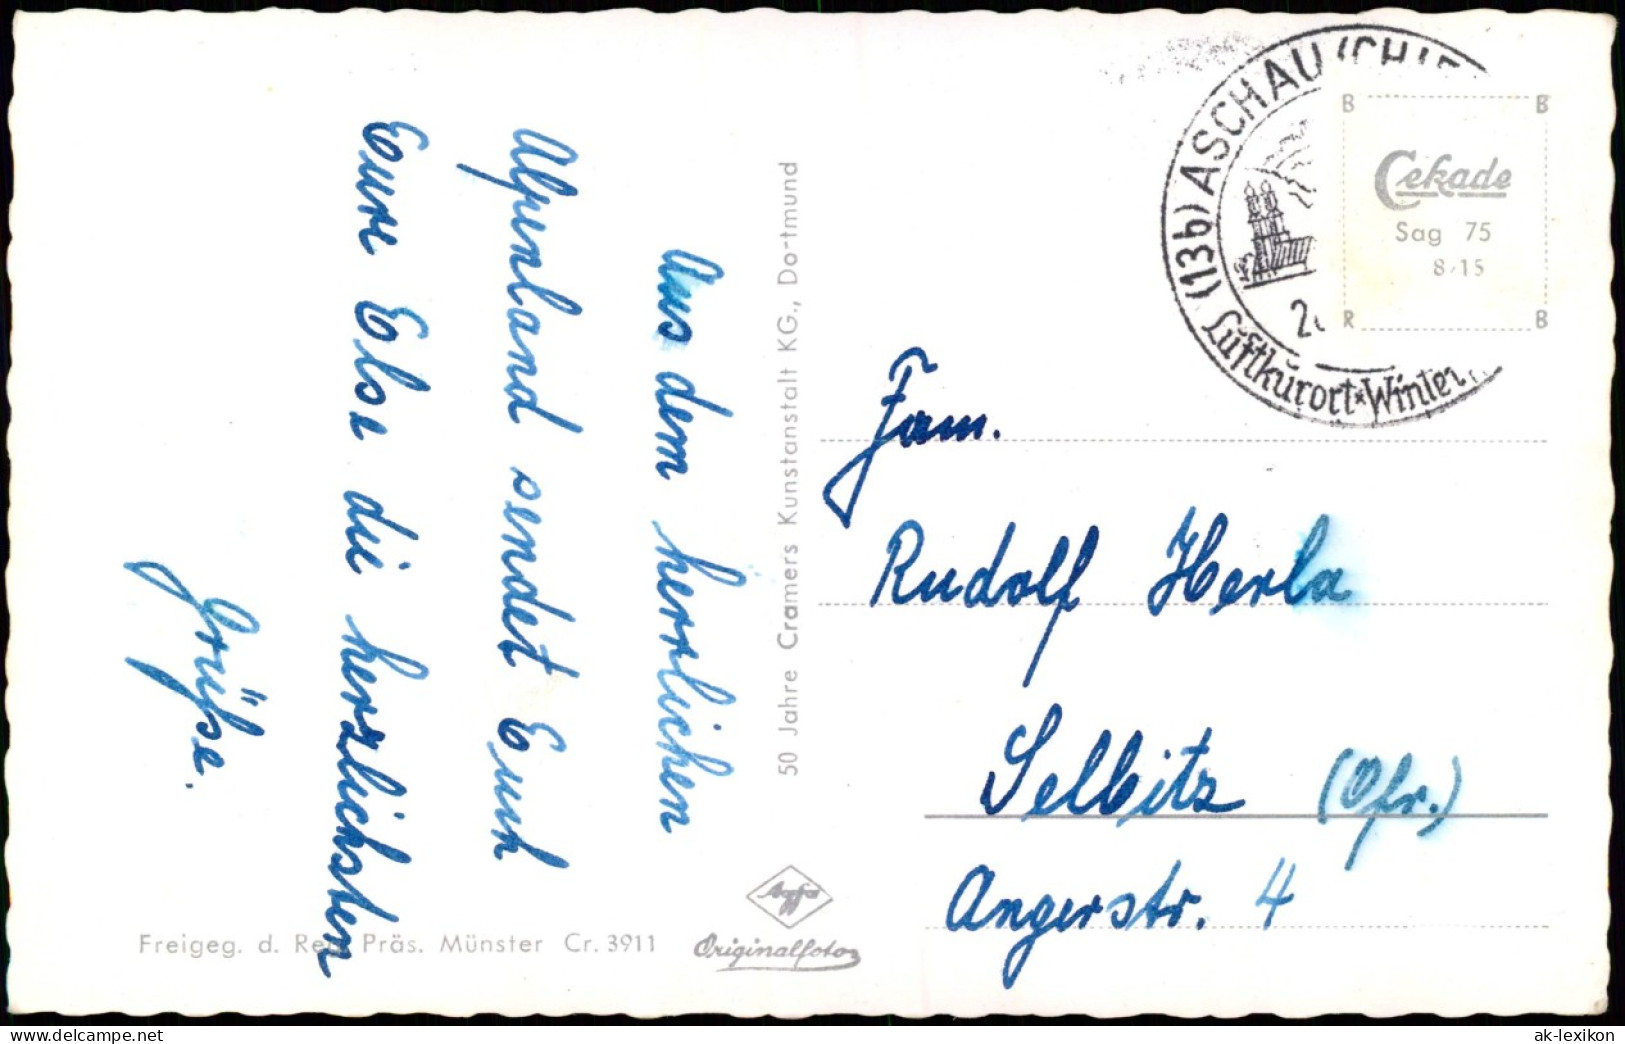 Aus dem herrlichen
Alpenland sendet Euch
Eure Else die herzlichsten
Grüße.
50 Jahre Cramers Kunstanstalt KG., Dortmund
(13b) ASCHAU (CHI
Luftkurort * Winter
B B
Cekade
Sag 75
8/15
R B
Fam.
Rudolf Herla
Selbitz (Ofr.)
Angerstr. 4
Agfa
Originalfoto
Freigeg. d. Reg. Präs. Münster Cr. 3911
hausansichtskarten.de